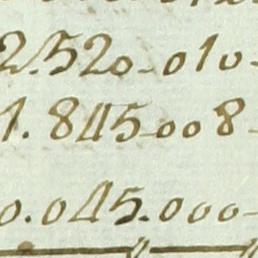 2.520-010-
1.845-008-
0.045.000-